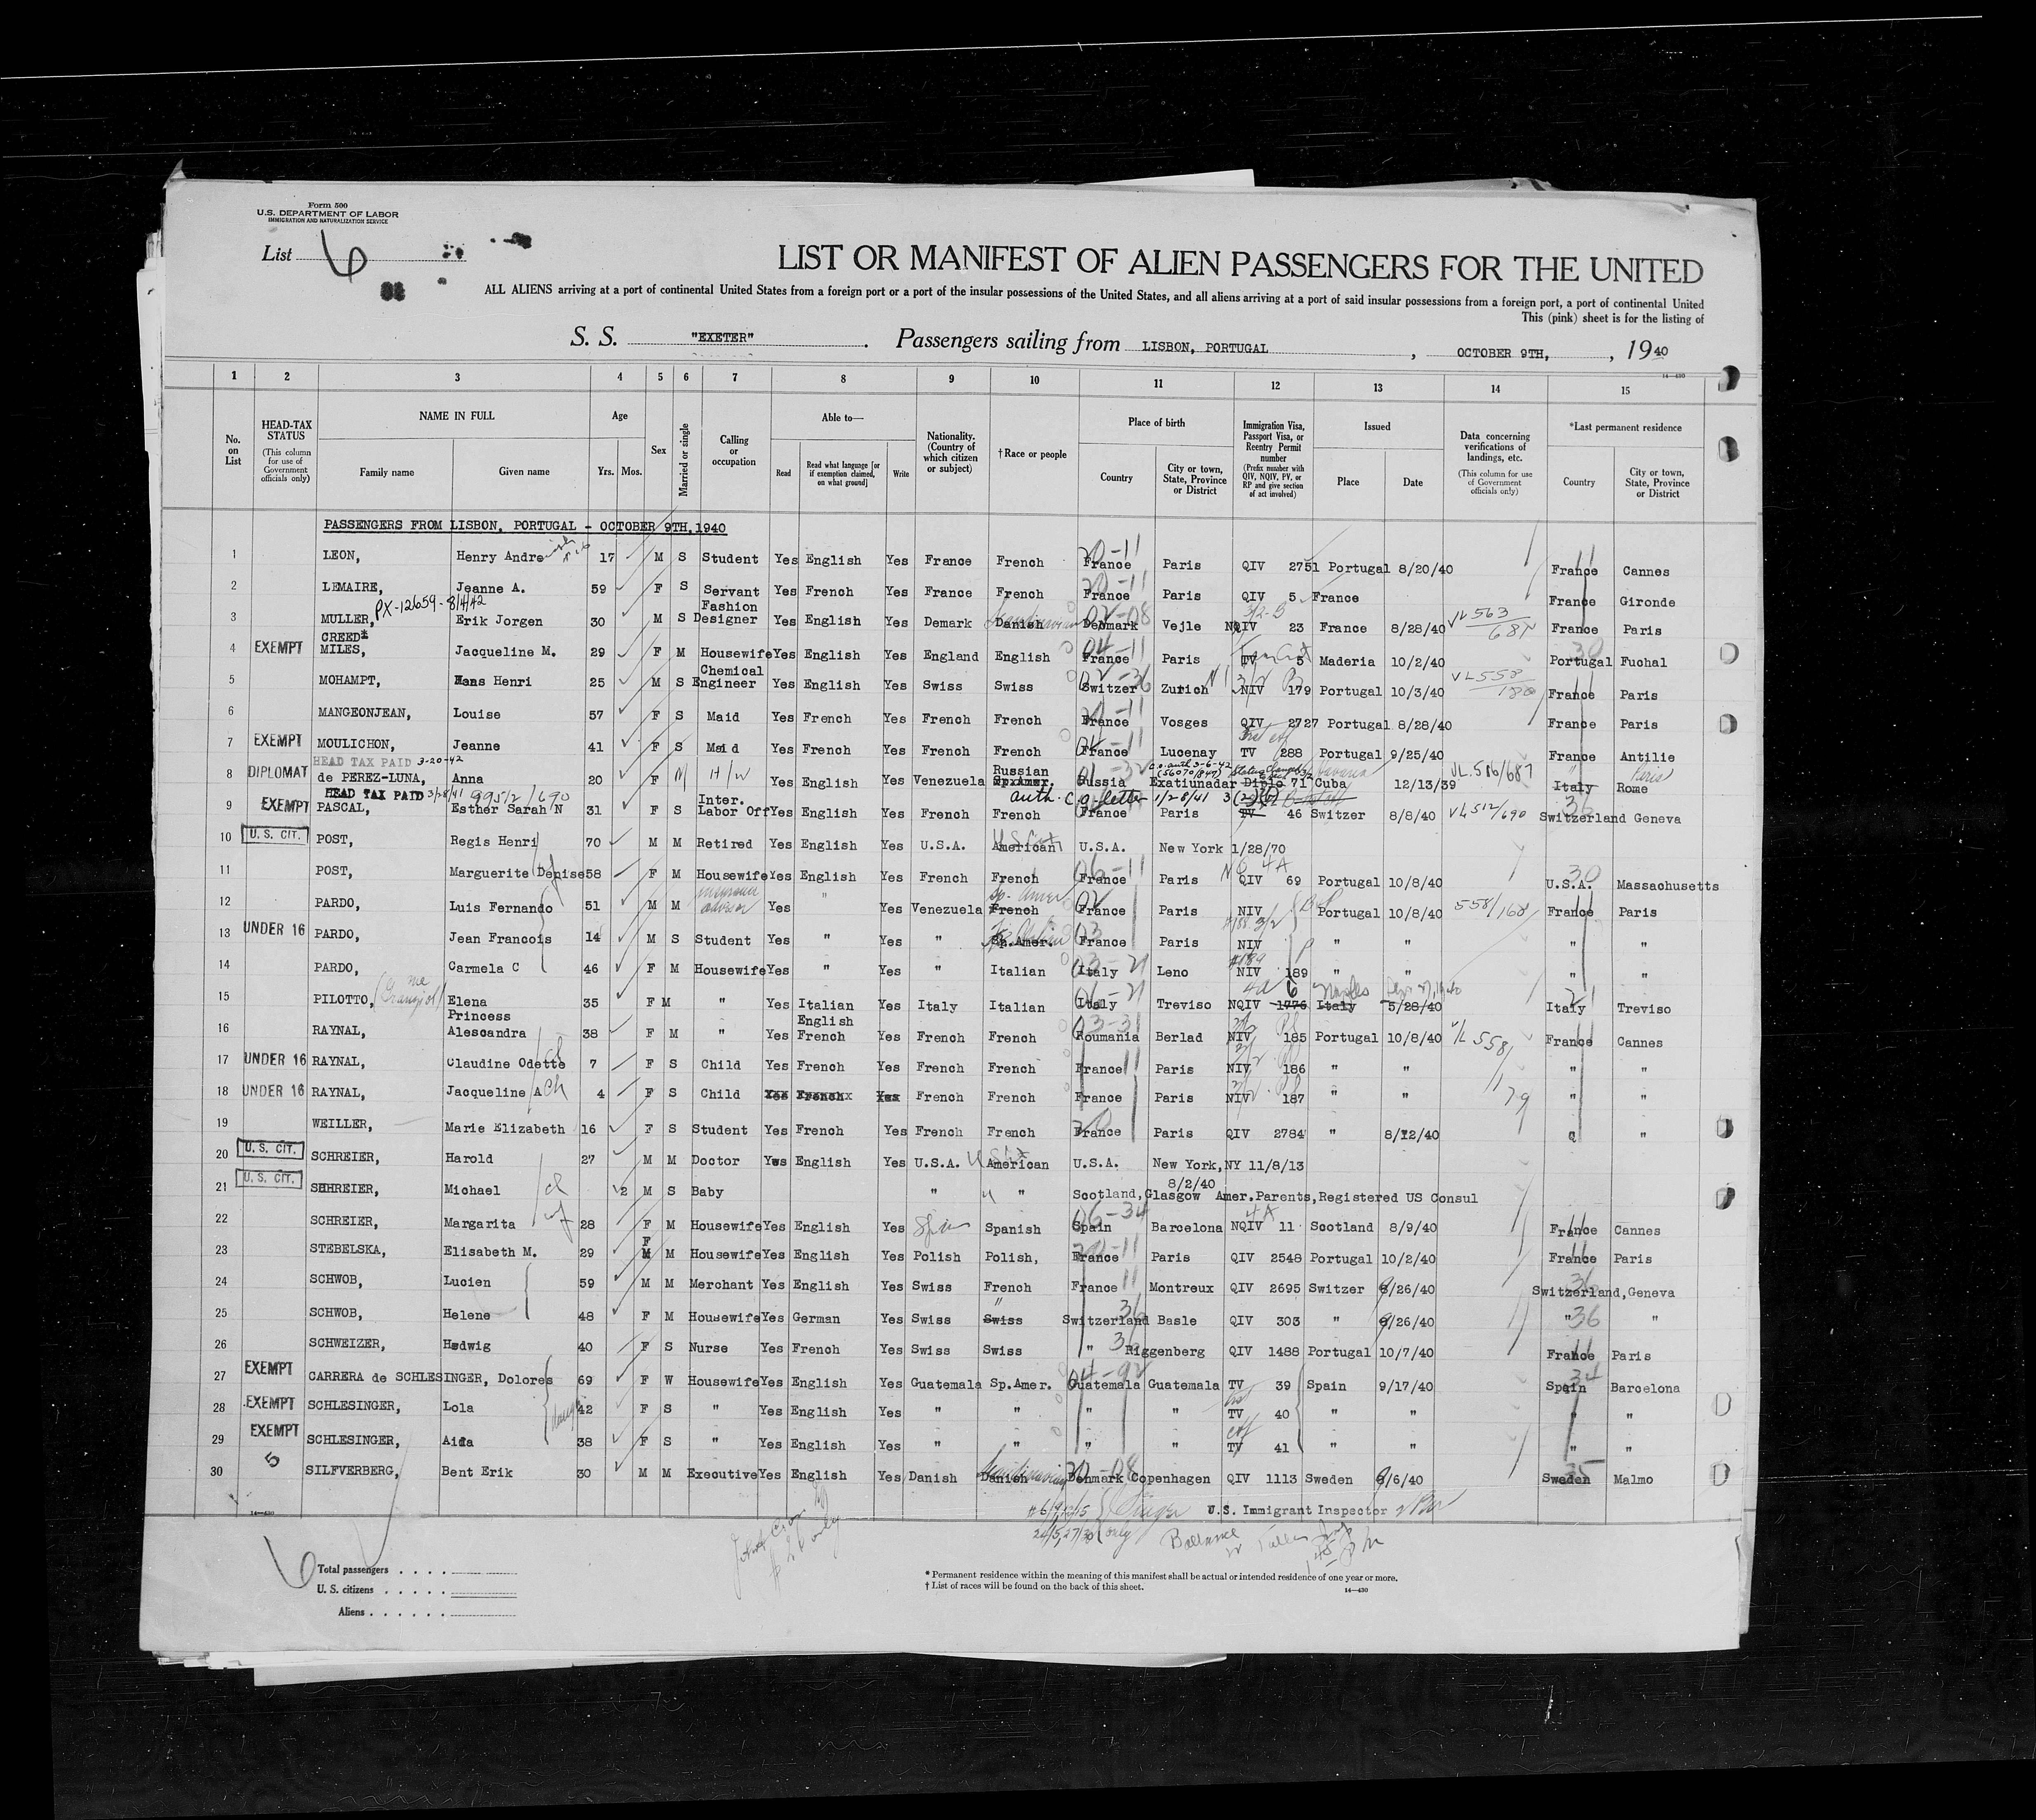 Form 500
U.S. DEPARTMENT OF LABOR
IMMIGRATION AND NATURALIZATION SERVICE
List 6
LIST OR MANIFEST OF ALIEN PASSENGERS FOR THE UNITED
ALL ALIENS arriving at a port of continental United States from a foreign port or a port of the insular possessions of the United States, and all aliens arriving at a port of said insular possessions from a foreign port, a port of continental United
This (pink) sheet is for the listing of
S. S. "EXETER". Passengers sailing from LISBON, PORTUGAL, OCTOBER 9TH, , 1940
14—430
1 2 3 4 5 6 7 8 9 10 11 12 13 14 15
No. on List
HEAD-TAX STATUS (This column for use of Government officials only)
NAME IN FULL
Family name Given name
Age
Yrs. Mos.
Sex
Married or single
Calling or occupation
Able to—
Read
Read what language [or if exemption claimed, on what ground]
Write
Nationality. (Country of which citizen or subject)
†Race or people
Place of birth
Country
City or town, State, Province or District
Immigration Visa, Passport Visa, or Reentry Permit number (Prefix number with QIV, NQIV, PV, or RP and give section of act involved)
Issued
Place Date
Data concerning verifications of landings, etc. (This column for use of Government officials only)
*Last permanent residence
Country
City or town, State, Province or District
PASSENGERS FROM LISBON, PORTUGAL - OCTOBER 9TH, 1940
1 LEON, Henry Andre 17 M S Student Yes English Yes France French 20-11 France Paris QIV 2751 Portugal 8/20/40 France Cannes
2 LEMAIRE, Jeanne A. 59 F S Servant Yes French Yes France French 20-11 France Paris QIV 5 France France Gironde
PX-12659-8/4/42
3 MULLER, Erik Jorgen 30 M S Fashion Designer Yes English Yes Demark Danish Scandinavian 02-08 Denmark Vejle 3/2-B NQIV 23 France 8/28/40 VL 563/687 France Paris
4 EXEMPT CREED* MILES, Jacqueline M. 29 F M Housewife Yes English Yes England English 04-11 France Paris TV 5 Maderia 10/2/40 30 Portugal Fuchal
5 MOHAMPT, Hans Henri 25 M S Chemical Engineer Yes English Yes Swiss Swiss 02-36 Switzer Zurich NIV 179 Portugal 10/3/40 VL558/180 France Paris
6 MANGEONJEAN, Louise 57 F S Maid Yes French Yes French French 20-11 France Vosges QIV 2727 Portugal 8/28/40 France Paris
7 EXEMPT MOULICHON, Jeanne 41 F S Maid Yes French Yes French French 04-11 France Lucenay TV 288 Portugal 9/25/40 France Antilie
HEAD TAX PAID 3-20-42
8 DIPLOMAT de PEREZ-LUNA, Anna 20 F M H/W Yes English Yes Venezuela Russian Sp.Amer. 01-32 Russia Exatiunadar Diplo 71 Cuba 12/13/39 VL.516/687 Italy Rome Paris
c.o. auth 3-6-42 (56070/847)
HEAD TAX PAID 3/28/41 99512/690
auth. C.O. letter 1/28/41 3(2)
9 EXEMPT PASCAL, Esther Sarah N 31 F S Inter. Labor Off Yes English Yes French French France Paris TV 46 Switzer 8/8/40 VL512/690 36 Switzerland Geneva
10 U. S. CIT. POST, Regis Henri 70 M M Retired Yes English Yes U.S.A. American US Cit U.S.A. New York 1/28/70
11 POST, Marguerite Denise 58 F M Housewife Yes English Yes French French 06-11 France Paris NQ 4A QIV 69 Portugal 10/8/40 30 U.S.A. Massachusetts
12 PARDO, Luis Fernando 51 M M insurance advisor Yes " Yes Venezuela French Sp. Amer 02 France Paris NIV Portugal 10/8/40 558/168 France Paris
13 UNDER 16 PARDO, Jean Francois 14 M S Student Yes " Yes " Sp.Amer. 03 France Paris #188 3/2 NIV " " " "
14 PARDO, Carmela C 46 F M Housewife Yes " Yes " Italian 03-21 Italy Leno #189 NIV 189 " " " "
15 PILOTTO, Elena 35 F M " Yes Italian Yes Italy Italian 06-21 Italy Treviso 4a NQIV 1776 6 Italy Naples 5/28/40 Italy Treviso
16 RAYNAL, Princess Alescandra 38 F M " Yes English French Yes French French 03-31 Roumania Berlad NIV 185 Portugal 10/8/40 VL 558/ France Cannes
17 UNDER 16 RAYNAL, Claudine Odette ch 7 F S Child Yes French Yes French French France 11 Paris NIV 186 " " 179 " "
18 UNDER 16 RAYNAL, Jacqueline A ch 4 F S Child Yes French Yes French French France Paris NIV 187 " " " "
19 WEILLER, Marie Elizabeth 16 F S Student Yes French Yes French French 20 France Paris QIV 2784 " 8/12/40 " "
20 U. S. CIT. SCHREIER, Harold 27 M M Doctor Yes English Yes U.S.A. American U.S.A. New York,NY 11/8/13
21 U. S. CIT. SHHREIER, Michael ch 2 M S Baby " " Scotland,Glasgow 8/2/40 Amer.Parents,Registered US Consul
22 SCHREIER, Margarita wf 28 F M Housewife Yes English Yes Spanish 06-34 Spain Barcelona 4A NQIV 11 Scotland 8/9/40 France Cannes
23 STEBELSKA, Elisabeth M. 29 F M Housewife Yes English Yes Polish Polish, 20-11 France Paris QIV 2548 Portugal 10/2/40 France Paris
24 SCHWOB, Lucien 59 M M Merchant Yes English Yes Swiss French France 11 Montreux QIV 2695 Switzer 9/26/40 36 Switzerland,Geneva
25 SCHWOB, Helene 48 F M Housewife Yes German Yes Swiss Swiss " 36 Switzerland Basle QIV 303 " 9/26/40 " 36 "
26 SCHWEIZER, Hedwig 40 F S Nurse Yes French Yes Swiss Swiss " 36 Riggenberg QIV 1488 Portugal 10/7/40 France Paris
27 EXEMPT CARRERA de SCHLESINGER, Dolores 69 F W Housewife Yes English Yes Guatemala Sp.Amer. 04-92 Guatemala Guatemala TV 39 Spain 9/17/40 34 Spain Barcelona
28 EXEMPT SCHLESINGER, Lola 42 F S " Yes English Yes " " " " TV 40 " " " "
29 EXEMPT SCHLESINGER, Aida 38 F S " Yes English Yes " " " " TV 41 " " " "
30 5 SILFVERBERG, Bent Erik 30 M M Executive Yes English Yes Danish Danish Scandinavian 20-08 Denmark Copenhagen QIV 1113 Sweden 9/6/40 35 Sweden Malmo
14—430
U.S. Immigrant Inspector
only
6
Total passengers . . . .
U. S. citizens . . . . .
Aliens . . . . . .
* Permanent residence within the meaning of this manifest shall be actual or intended residence of one year or more.
† List of races will be found on the back of this sheet.
14—430